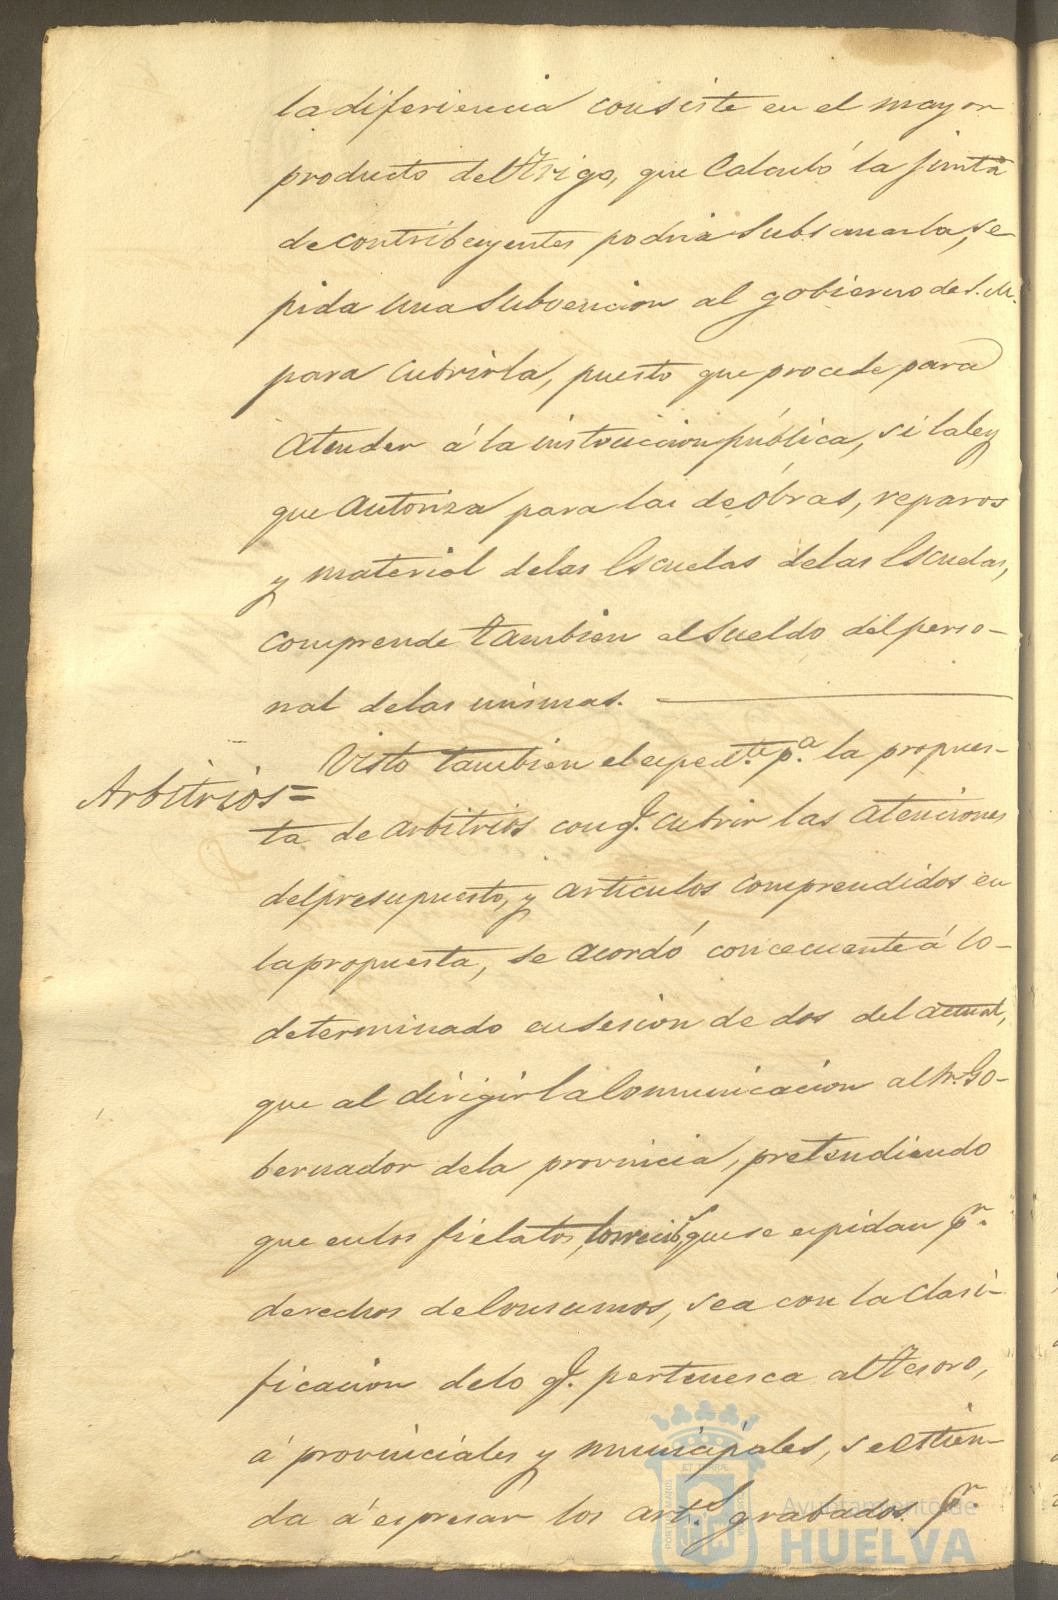 la diferiencia consiste en el mayor
producto del trigo, que Calculó la Junta
de contribuyentes podria subsanarla, se
pida una Subvencion al gobierno de S. M.
para cubrirla, puesto que procede para
Atender á la instruccion pública, si la ley
que Autoriza para las de óbras, reparos
y material de las Escuelas de las Escuelas,
comprende tambien el sueldo del perso-
nal de las mismas.
Visto tambien el espedte. pa. la propues-
Arbitrios=
ta de arbitrios con q. cubrir las atenciones
del presupuesto, y articulos comprendidos en
la propuesta, se acordó concecuente á lo-
determinado en sesion de dos del actual,
que al dirigir la Comunicacion al Sr. Go-
bernador de la provincia, pretendiendo
que en los fielatos, los recibs que se espidan pr.
derechos de Consumos, sea con la Clasi-
ficacion de lo q. pertenesca al Tesoro,
á provinciales y municipales, se estien-
da á espresar los arts. grabados pr.
Ayuntamiento de
HUELVA